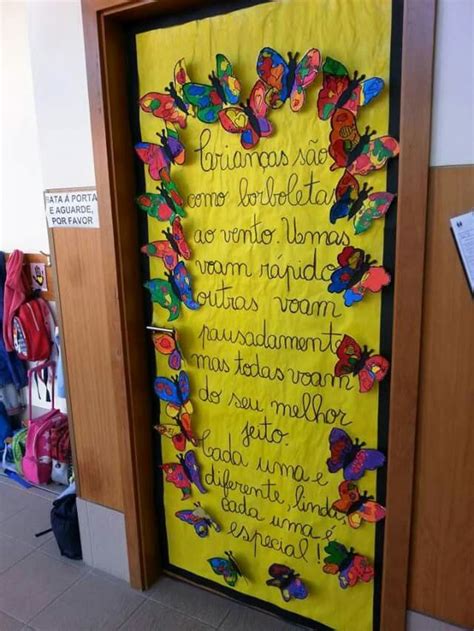 BATA À PORTA
E AGUARDE,
POR FAVOR
Crianças são
como borboletas
ao vento. Umas
voam rápido
outras voam
pausadamente
mas todas voam
do seu melhor
jeito.
Cada uma é
diferente, linda,
cada uma é
especial!